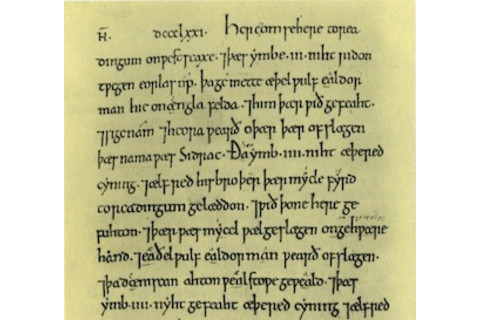 N̄. dccclxxi. Her com se here to rea
dingum on ƿest seaxe. ⁊þæs ymbe .iii. niht ridon
tƿegen eorlas úp. þa gemette æþelƿulf ealdor
man hie on engla felda. ⁊him þær ƿið gefeaht.
⁊sige nam. ⁊heora ƿearð oþær þær ofslægen
þæs nama ƿæs Sidrac. Ða ymb .iiii. niht æþered
cyning. ⁊ælfred his broþer þær mycle fyrd
to readingum gelæddon. ⁊ƿið þone here ge
fuhton. ⁊þær ƿæs mycel ƿæl geslægen on gehƿære
hand. ⁊eaðelƿulf ealdorman ƿearð ofslægen.
⁊þa dæniscan ahton ƿælstoƿe geƿeald. ⁊þæs
ymb .iiii. nyht gefeaht æþered cyning ⁊ælfred